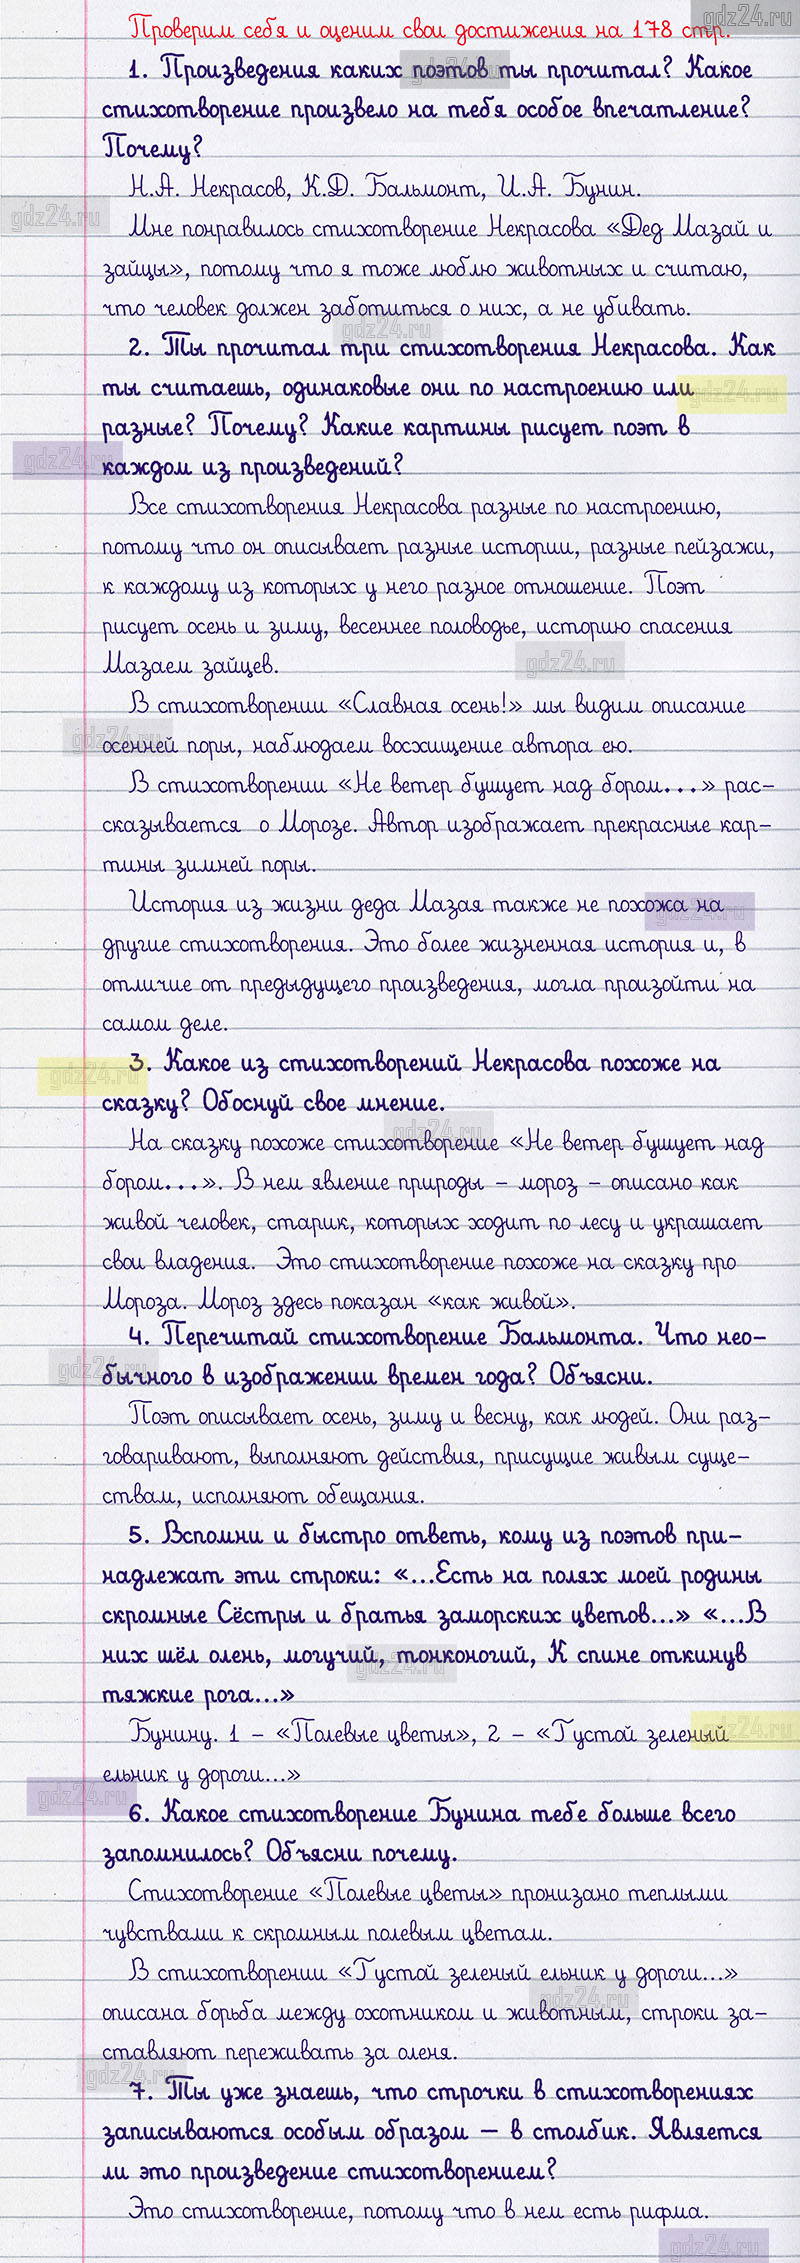 gdz24.ru
Проверим себя и оценим свои достижения на 178 стр.
1. Произведения каких поэтов ты прочитал? Какое
стихотворение произвело на тебя особое впечатление?
Почему?
Н.А. Некрасов, К.Д. Бальмонт, И.А. Бунин.
Мне понравилось стихотворение Некрасова «Дед Мазай и
зайцы», потому что я тоже люблю животных и считаю,
что человек должен заботиться о них, а не убивать.
2. Ты прочитал три стихотворения Некрасова. Как
ты считаешь, одинаковые они по настроению или
разные? Почему? Какие картины рисует поэт в
каждом из произведений?
Все стихотворения Некрасова разные по настроению,
потому что он описывает разные истории, разные пейзажи,
к каждому из которых у него разное отношение. Поэт
рисует осень и зиму, весеннее половодье, историю спасения
Мазаем зайцев.
В стихотворении «Славная осень!» мы видим описание
осенней поры, наблюдаем восхищение автора ею.
В стихотворении «Не ветер бушует над бором...» рас-
сказывается о Морозе. Автор изображает прекрасные кар-
тины зимней поры.
История из жизни деда Мазая также не похожа на
другие стихотворения. Это более жизненная история и, в
отличие от предыдущего произведения, могла произойти на
самом деле.
3. Какое из стихотворений Некрасова похоже на
сказку? Обоснуй свое мнение.
На сказку похоже стихотворение «Не ветер бушует над
бором...». В нем явление природы – мороз – описано как
живой человек, старик, которых ходит по лесу и украшает
свои владения. Это стихотворение похоже на сказку про
Мороза. Мороз здесь показан «как живой».
4. Перечитай стихотворение Бальмонта. Что нео-
бычного в изображении времен года? Объясни.
Поэт описывает осень, зиму и весну, как людей. Они раз-
говаривают, выполняют действия, присущие живым суще-
ствам, исполняют обещания.
5. Вспомни и быстро ответь, кому из поэтов при-
надлежат эти строки: «...Есть на полях моей родины
скромные Сёстры и братья заморских цветов...» «...В
них шёл олень, могучий, тонконогий, К спине откинув
тяжкие рога...»
Бунину. 1 – «Полевые цветы», 2 – «Густой зеленый
ельник у дороги...»
6. Какое стихотворение Бунина тебе больше всего
запомнилось? Объясни почему.
Стихотворение «Полевые цветы» пронизано теплыми
чувствами к скромным полевым цветам.
В стихотворении «Густой зеленый ельник у дороги...»
описана борьба между охотником и животным, строки за-
ставляют переживать за оленя.
7. Ты уже знаешь, что строчки в стихотворениях
записываются особым образом — в столбик. Является
ли это произведение стихотворением?
Это стихотворение, потому что в нем есть рифма.
gdz24.ru